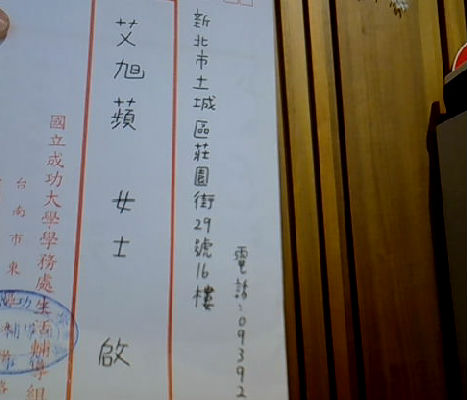 新北市土城區莊園街29號16樓
電話:09392
艾旭蘋 女士 啟
國立成功大學學務處生活輔導組
台南市東